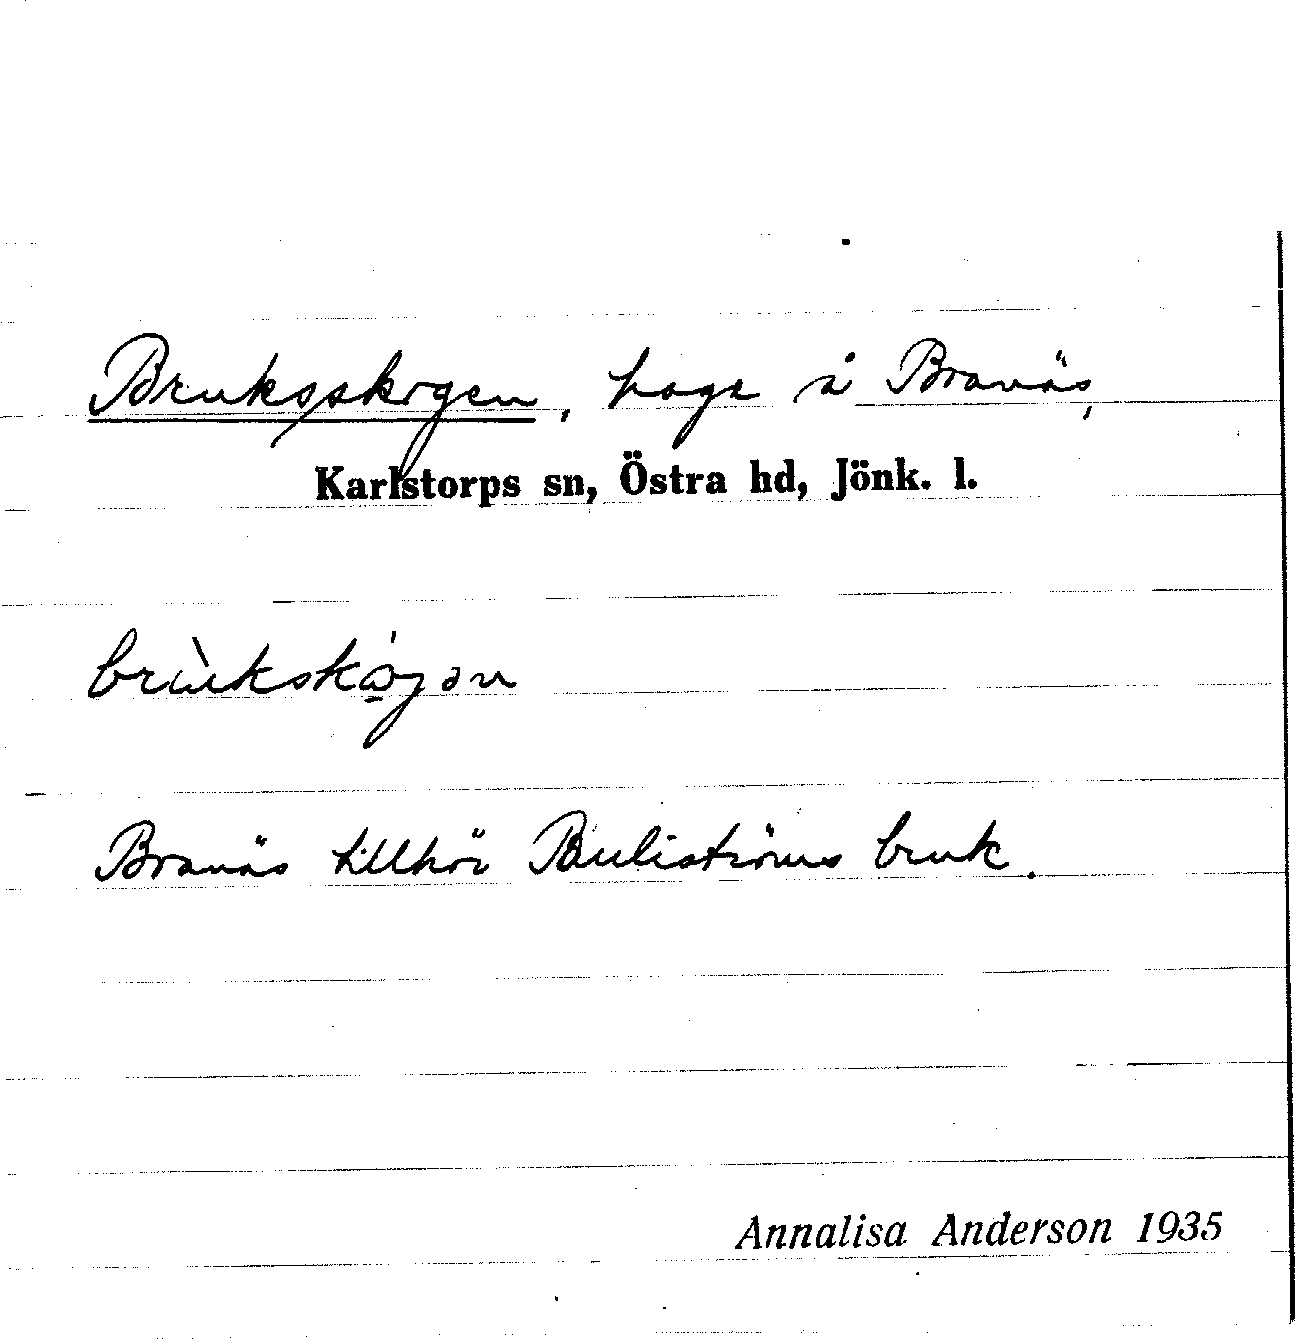 Bruksskogen, hage å Branäs,
Karlstorps sn, Östra hd, Jönk. l.
brùkskǫ́gən
Branäs tillhör Pauliströms bruk.
Annalisa Anderson 1935